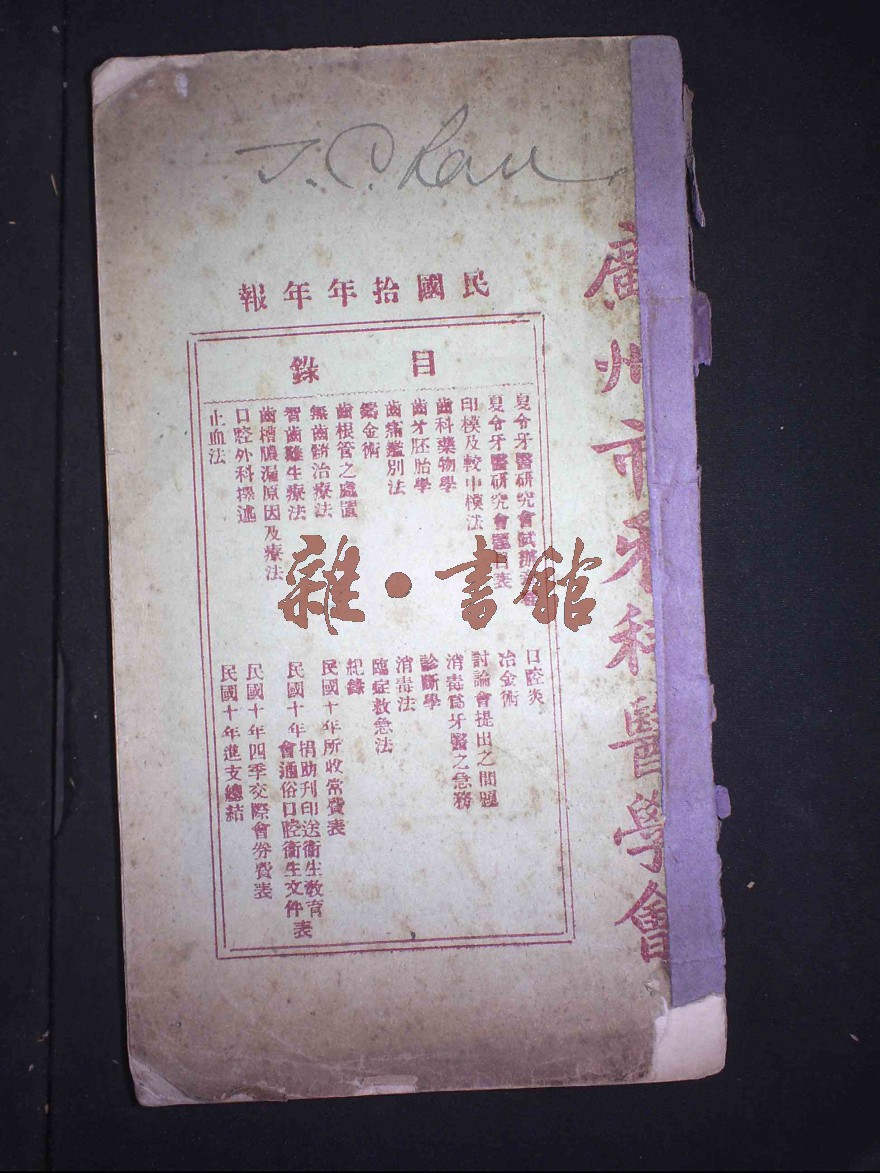 廣州市牙科醫學會
民國拾年年報
目錄
夏令牙醫研究會試辦
夏令牙醫研究會題目表
印模及較中模法
齒科藥物學
齒牙胚胎學
齒痛鑑別法
鑄金術
齒根管之處置
無齒齶治療法
智齒難生療法
齒槽膿漏原因及療法
口腔外科擇述
止血法
口腔炎
冶金術
討論會提出之問題
消毒爲牙醫之急務
診斷學
消毒法
臨症救急法
紀錄
民國十年所收常費表
民國十年捐助刊印送衛生敎育會通俗口腔衛生文件表
民國十年四季交際會券費表
民國十年進支總結
雜·書館